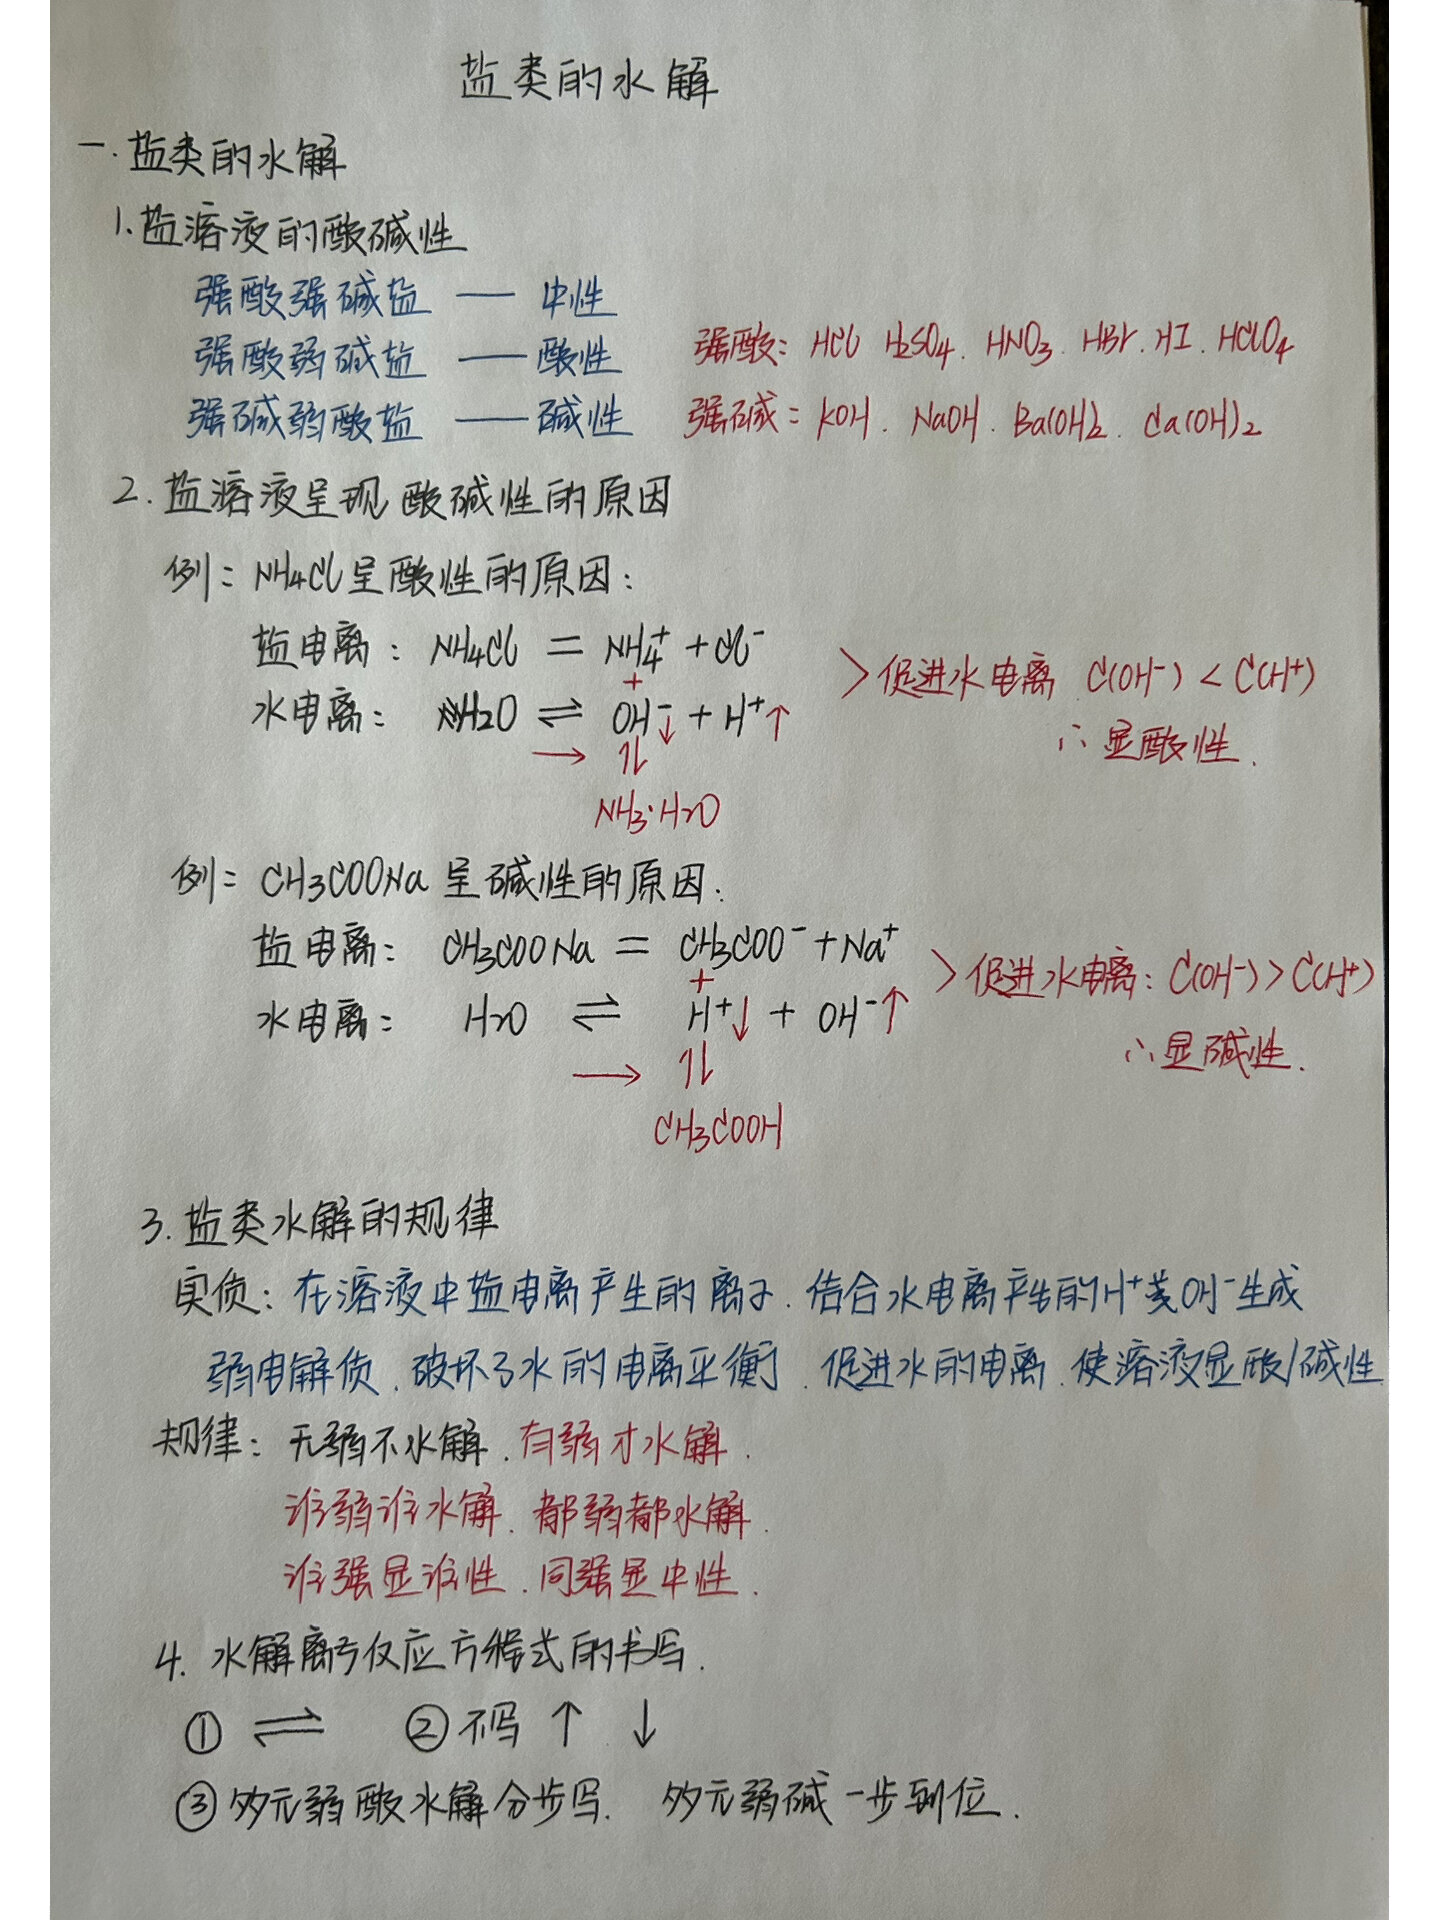 盐类的水解
一.盐类的水解
1.盐溶液的酸碱性
强酸强碱盐 —— 中性
强酸弱碱盐 —— 酸性 强酸: HCl H₂SO₄. HNO₃. HBr. HI. HClO₄
强碱弱酸盐 —— 碱性 强碱: KOH. NaOH. Ba(OH)₂. Ca(OH)₂
2.盐溶液呈现酸碱性的原因
例: NH₄Cl呈酸性的原因:
盐电离: NH₄Cl = NH₄⁺ + Cl⁻
+
水电离: H₂O ⇌ OH⁻↓ + H⁺↑
> 促进水电离 C(OH⁻) < C(H⁺)
∴ 显酸性.
→ ⇅
NH₃·H₂O
例: CH₃COONa 呈碱性的原因:
盐电离: CH₃COONa = CH₃COO⁻ + Na⁺
+
水电离: H₂O ⇌ H⁺↓ + OH⁻↑
> 促进水电离: C(OH⁻) > C(H⁺)
∴ 显碱性.
→ ⇅
CH₃COOH
3.盐类水解的规律
实质: 在溶液中盐电离产生的离子. 结合水电离产生的H⁺或OH⁻生成
弱电解质. 破坏了水的电离平衡. 促进水的电离. 使溶液显酸/碱性
规律: 无弱不水解. 有弱才水解.
谁弱谁水解. 都弱都水解.
谁强显谁性. 同强显中性.
4. 水解离子反应方程式的书写.
① ⇌ ② 不写 ↑ ↓
③ 多元弱酸水解分步写. 多元弱碱一步到位.